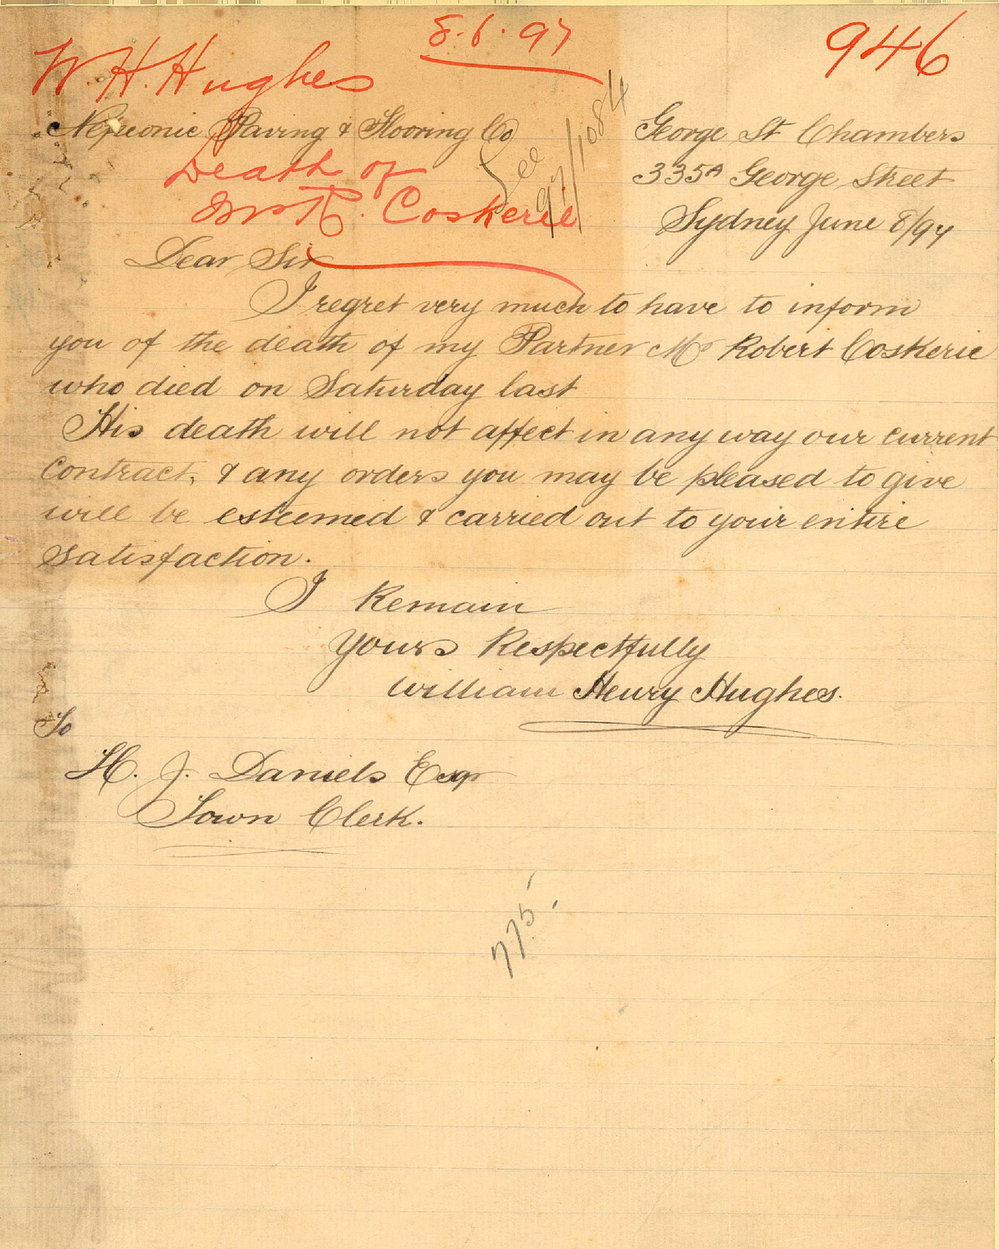 8.6.97
946
W. H. Hughes
Paving & Flooring Co
Death of
Mr R. Coskerie
See
97/1084
George St Chambers
335A George Street
Sydney June 8/97
Dear Sir
I regret very much to have to inform
you of the death of my Partner Mr Robert Coskerie
who died on Saturday last
His death will not affect in any way our current
contract, & any orders you may be pleased to give
will be esteemed & carried out to your entire
satisfaction.
I Remain
Yours Respectfully
William Henry Hughes.
To
H. J. Daniels Esqr
Town Clerk.
775